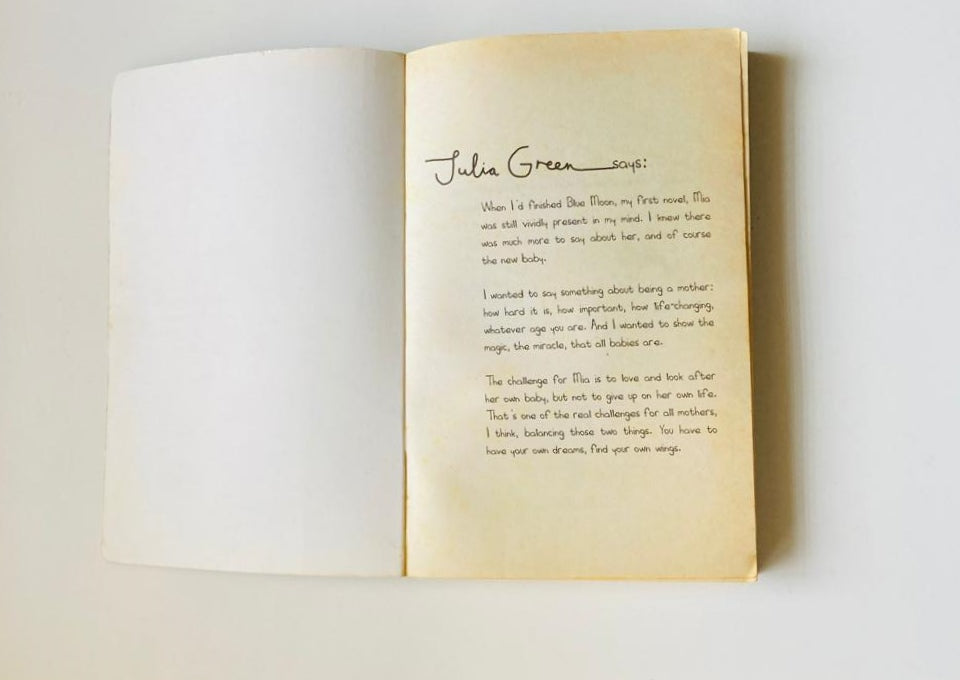 Julia Green says:
When I'd finished Blue Moon, my first novel, Mia
was still vividly present in my mind. I knew there
was much more to say about her, and of course
the new baby.
I wanted to say something about being a mother:
how hard it is, how important, how life-changing,
whatever age you are. And I wanted to show the
magic, the miracle, that all babies are.
The challenge for Mia is to love and look after
her own baby, but not to give up on her own life.
That's one of the real challenges for all mothers,
I think, balancing those two things. You have to
have your own dreams, find your own wings.